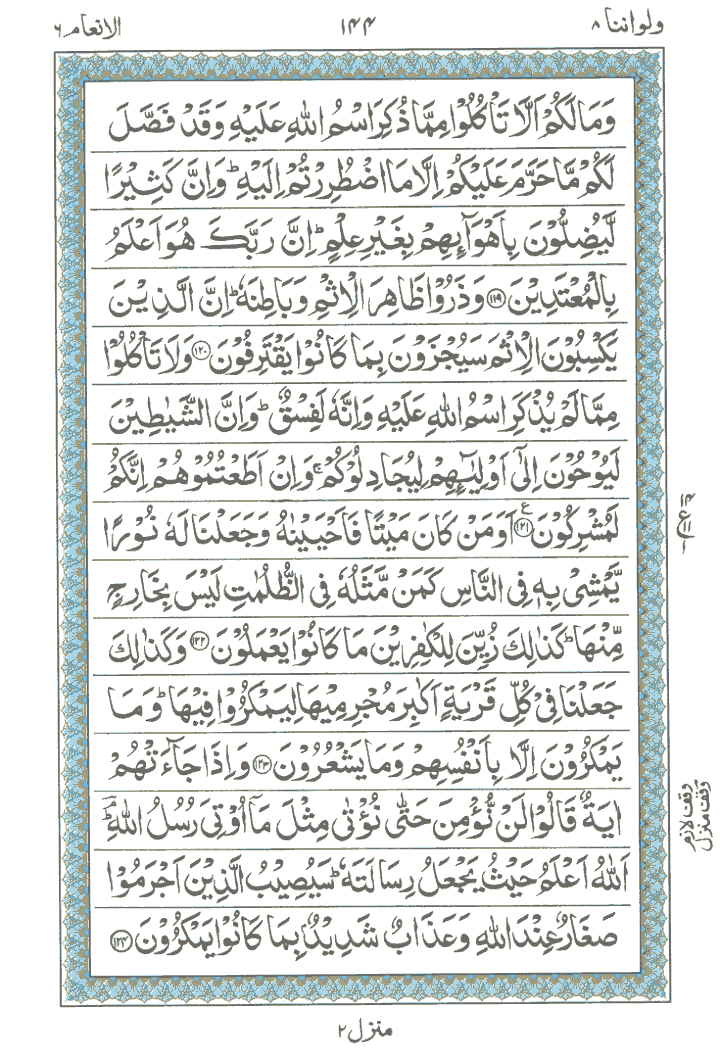 ولواننا ٨ ١٤٤ الانعام ٦
وَمَا لَكُمْ اَلَّا تَاْكُلُوْا مِمَّا ذُكِرَ اسْمُ اللّٰهِ عَلَيْهِ وَقَدْ فَصَّلَ
لَكُمْ مَّا حَرَّمَ عَلَيْكُمْ اِلَّا مَا اضْطُرِرْتُمْ اِلَيْهِ ؕ وَاِنَّ كَثِيْرًا
لَّيُضِلُّوْنَ بِاَهْوَآىِٕهِمْ بِغَيْرِ عِلْمٍ ؕ اِنَّ رَبَّكَ هُوَ اَعْلَمُ
بِالْمُعْتَدِيْنَ ﴿١١٩﴾ وَذَرُوْا ظَاهِرَ الْاِثْمِ وَبَاطِنَهٗ ؕ اِنَّ الَّذِيْنَ
يَكْسِبُوْنَ الْاِثْمَ سَيُجْزَوْنَ بِمَا كَانُوْا يَقْتَرِفُوْنَ ﴿١٢٠﴾ وَلَا تَاْكُلُوْا
مِمَّا لَمْ يُذْكَرِ اسْمُ اللّٰهِ عَلَيْهِ وَاِنَّهٗ لَفِسْقٌ ؕ وَاِنَّ الشَّيٰطِيْنَ
لَيُوْحُوْنَ اِلٰٓى اَوْلِيٰٓـِٕهِمْ لِيُجَادِلُوْكُمْ ۚ وَاِنْ اَطَعْتُمُوْهُمْ اِنَّكُمْ
لَمُشْرِكُوْنَ ﴿١٢١﴾ ع اَوَمَنْ كَانَ مَيْتًا فَاَحْيَيْنٰهُ وَجَعَلْنَا لَهٗ نُوْرًا
يَّمْشِيْ بِهٖ فِي النَّاسِ كَمَنْ مَّثَلُهٗ فِي الظُّلُمٰتِ لَيْسَ بِخَارِجٍ
مِّنْهَا ؕ كَذٰلِكَ زُيِّنَ لِلْكٰفِرِيْنَ مَا كَانُوْا يَعْمَلُوْنَ ﴿١٢٢﴾ وَكَذٰلِكَ
جَعَلْنَا فِيْ كُلِّ قَرْيَةٍ اَكٰبِرَ مُجْرِمِيْهَا لِيَمْكُرُوْا فِيْهَا ؕ وَمَا
يَمْكُرُوْنَ اِلَّا بِاَنْفُسِهِمْ وَمَا يَشْعُرُوْنَ ﴿١٢٣﴾ وَاِذَا جَآءَتْهُمْ
اٰيَةٌ قَالُوْا لَنْ نُّؤْمِنَ حَتّٰى نُؤْتٰى مِثْلَ مَآ اُوْتِيَ رُسُلُ اللّٰهِ ؕۘ
اَللّٰهُ اَعْلَمُ حَيْثُ يَجْعَلُ رِسَالَتَهٗ ؕ سَيُصِيْبُ الَّذِيْنَ اَجْرَمُوْا
صَغَارٌ عِنْدَ اللّٰهِ وَعَذَابٌ شَدِيْدٌۢ بِمَا كَانُوْا يَمْكُرُوْنَ ﴿١٢٤﴾
وقف لازم
وقف منزل
منزل ٢